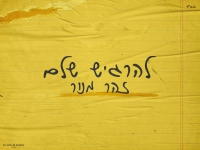 להרגיש שלם
זהר מנור